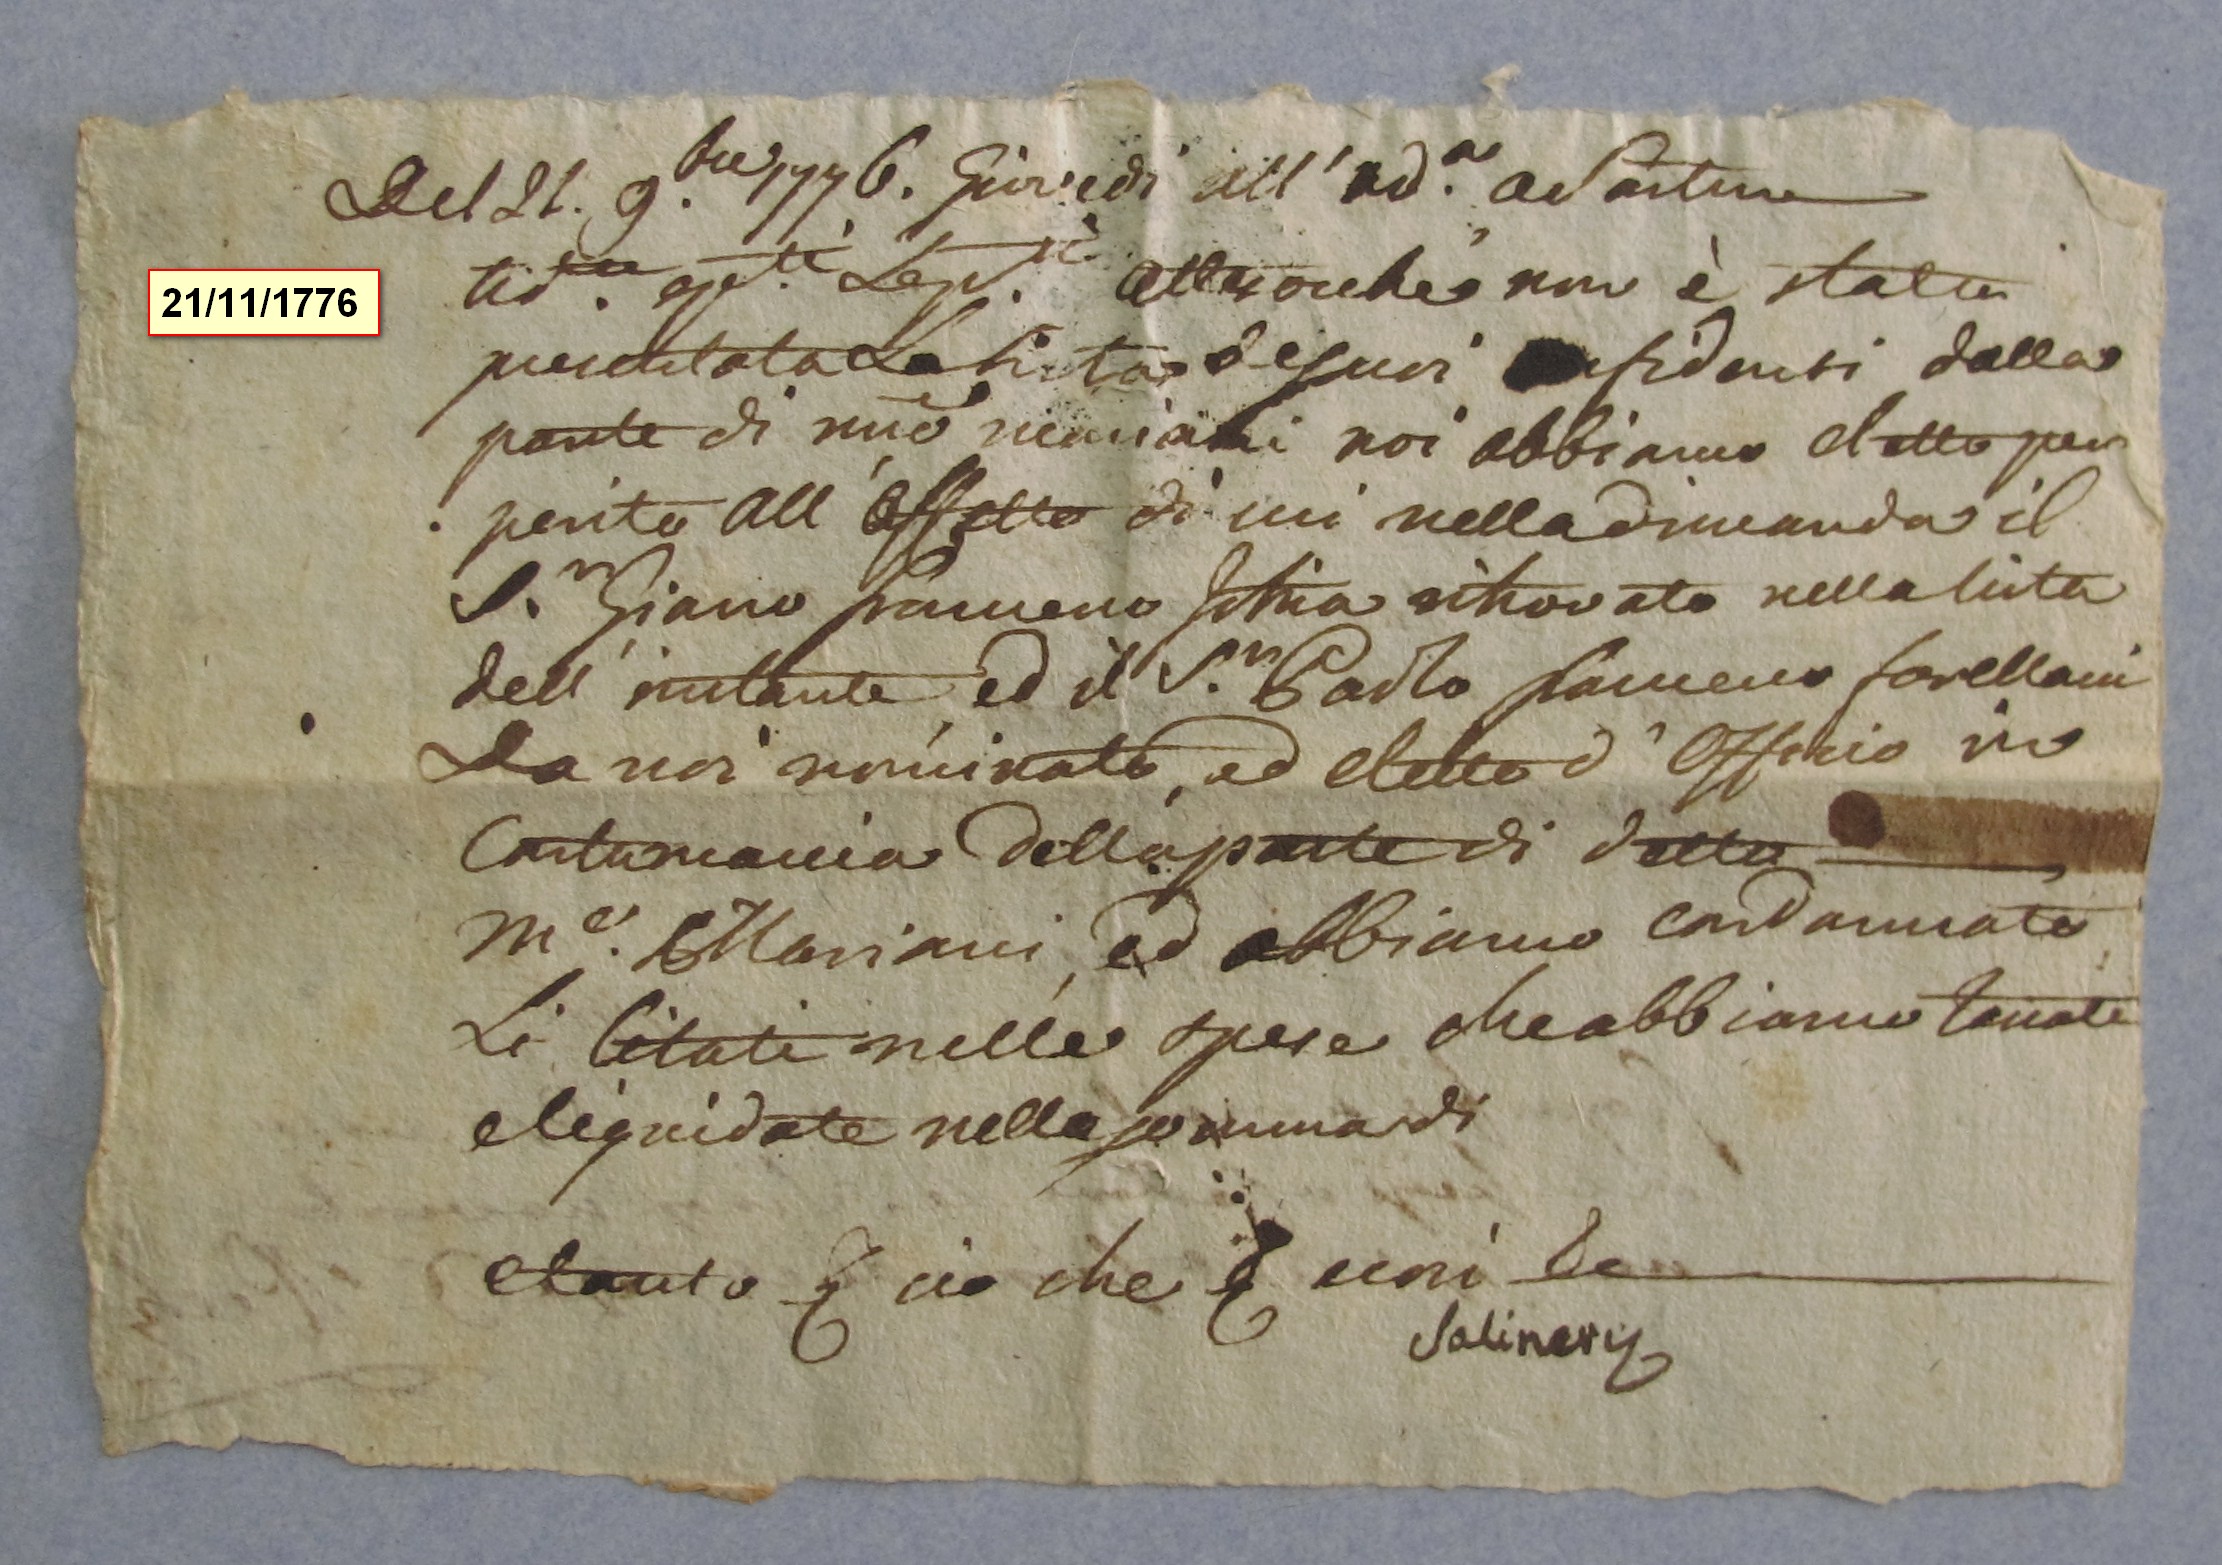 Del 21. 9.bre 1776. Giovedi all' ud.a
21/11/1776
attesocche non è stata
presentata La lista de suoi confidenti dalla
parte di mariani noi abbiamo eletto per
perito all' effetto di cui nella dimanda il
S.r Giano Frameno ritrovato nella lista
dell' instante ed il S.r Paolo
Da noi nominato, ed eletto d' Officio in
Contumacia della parte di detto
M.e Mariani, ed abbiamo condannato
Li Citati nelle spese che abbiamo tassate
e liquidate nella somma di
e tanto ciò che
Salinery